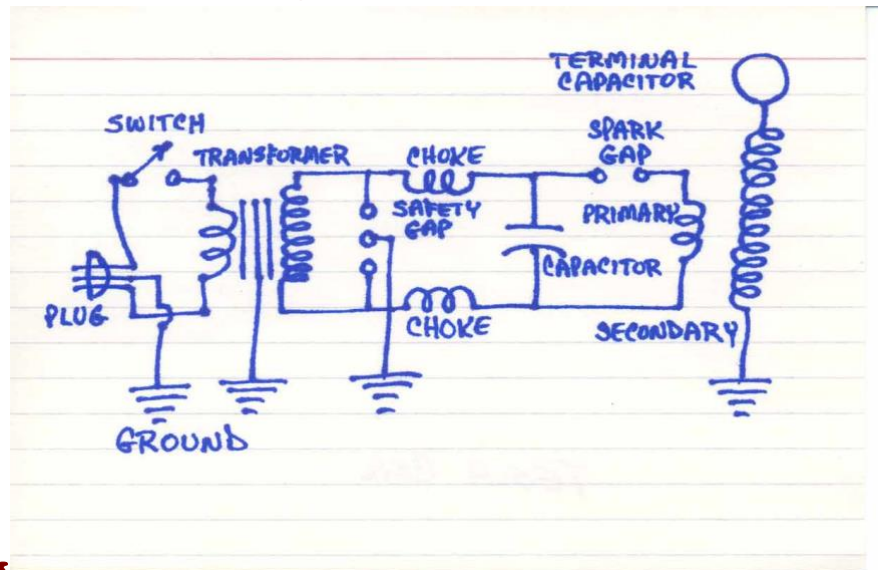 TERMINAL
CAPACITOR
SWITCH
TRANSFORMER
CHOKE
SPARK
GAP
SAFETY
GAP
PRIMARY
CAPACITOR
PLUG
CHOKE
SECONDARY
GROUND